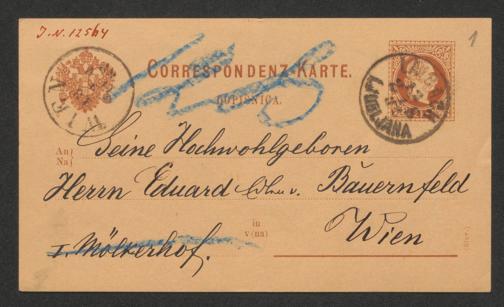 J.N. 12564
1
CORRESPONDENZ-KARTE.
DOPISNICA.
WIEN
LJUBLJANA
An)
Na)
Seine Hochwohlgeboren
Herrn Eduard v. Bauernfeld
in
v (na)
Wien
I. Mölkerhof.